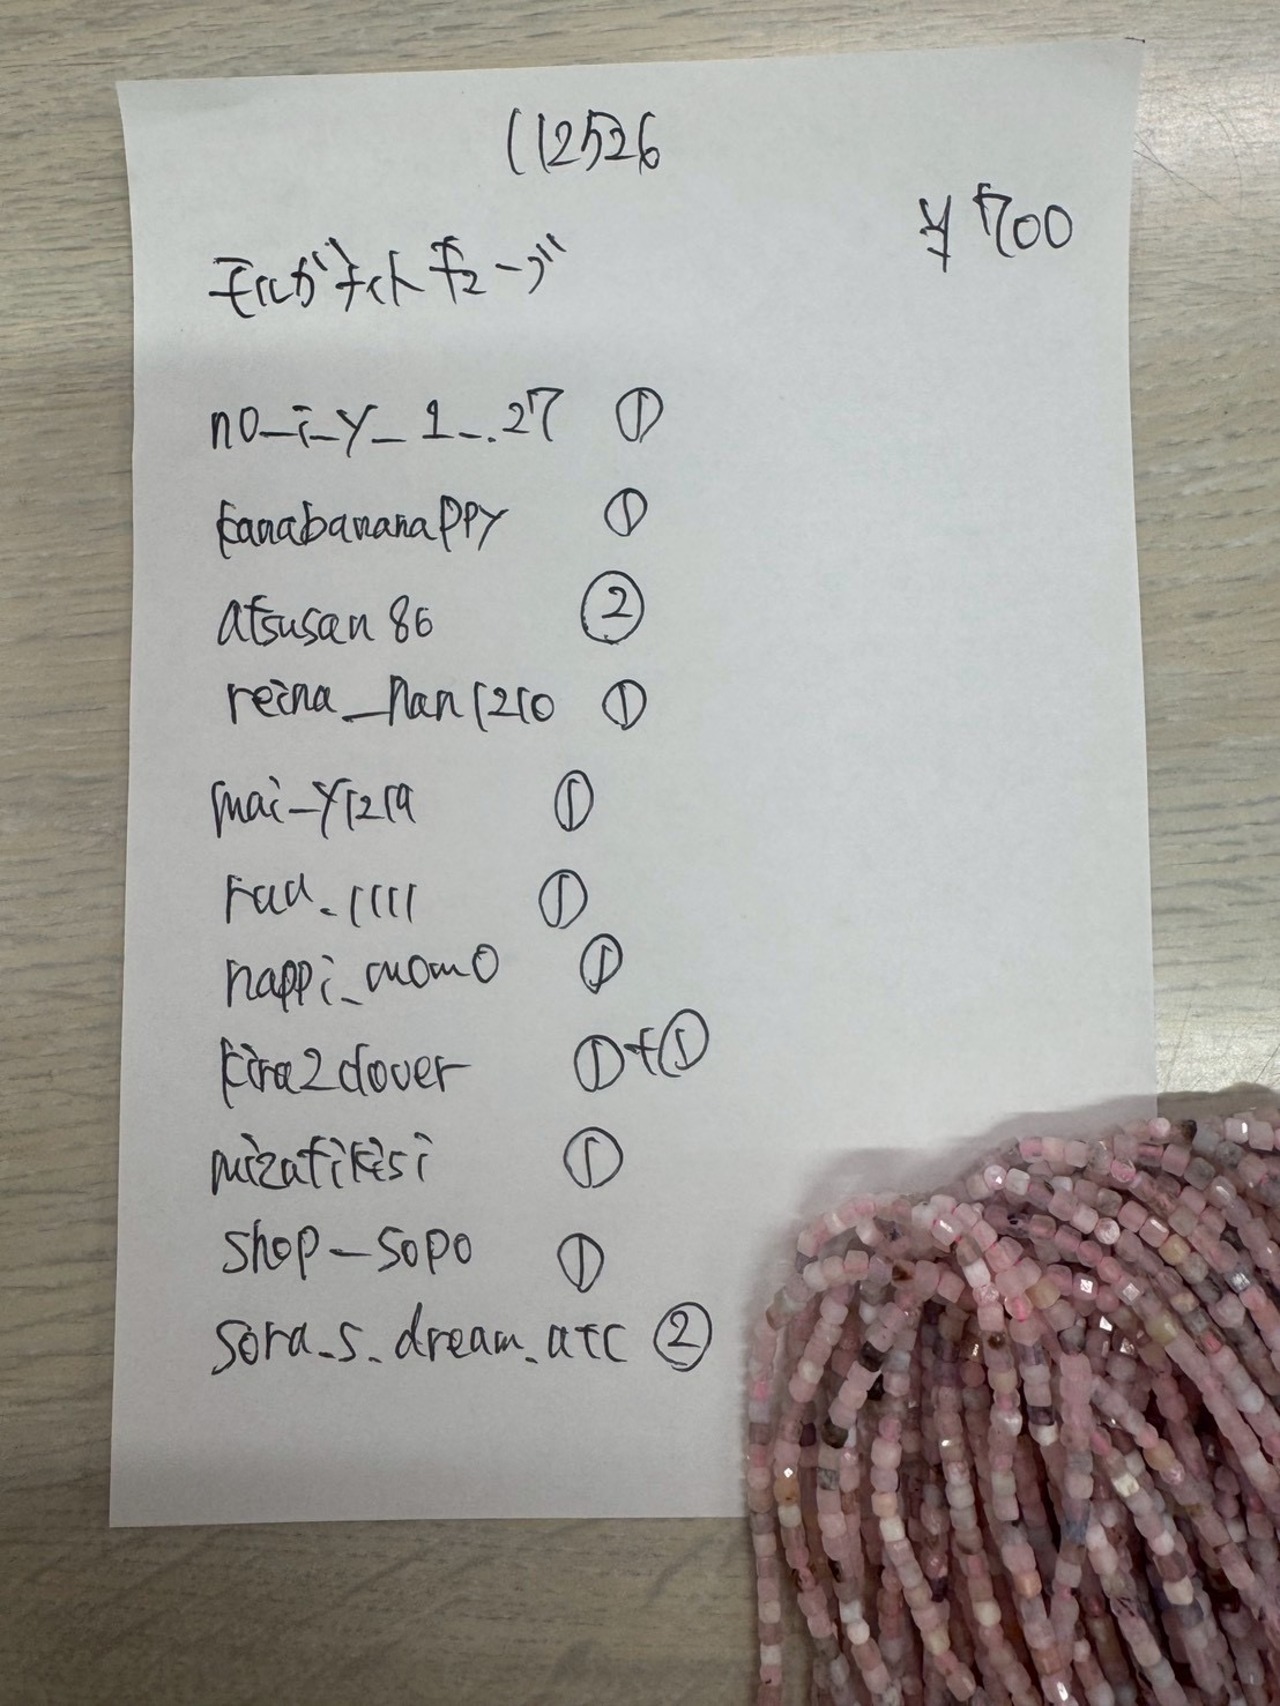 112526
¥700
モルガナイトキューブ
no_i_y_1_.27 ①
kanabananappy ①
atsusan86 ②
reina_nan1210 ①
mai_y1219 ①
rau_1111 ①
nappi_momo ①
kira2clover ①+①
mizatikisi ①
shop_sopo ①
sora_s_dream_atc ②